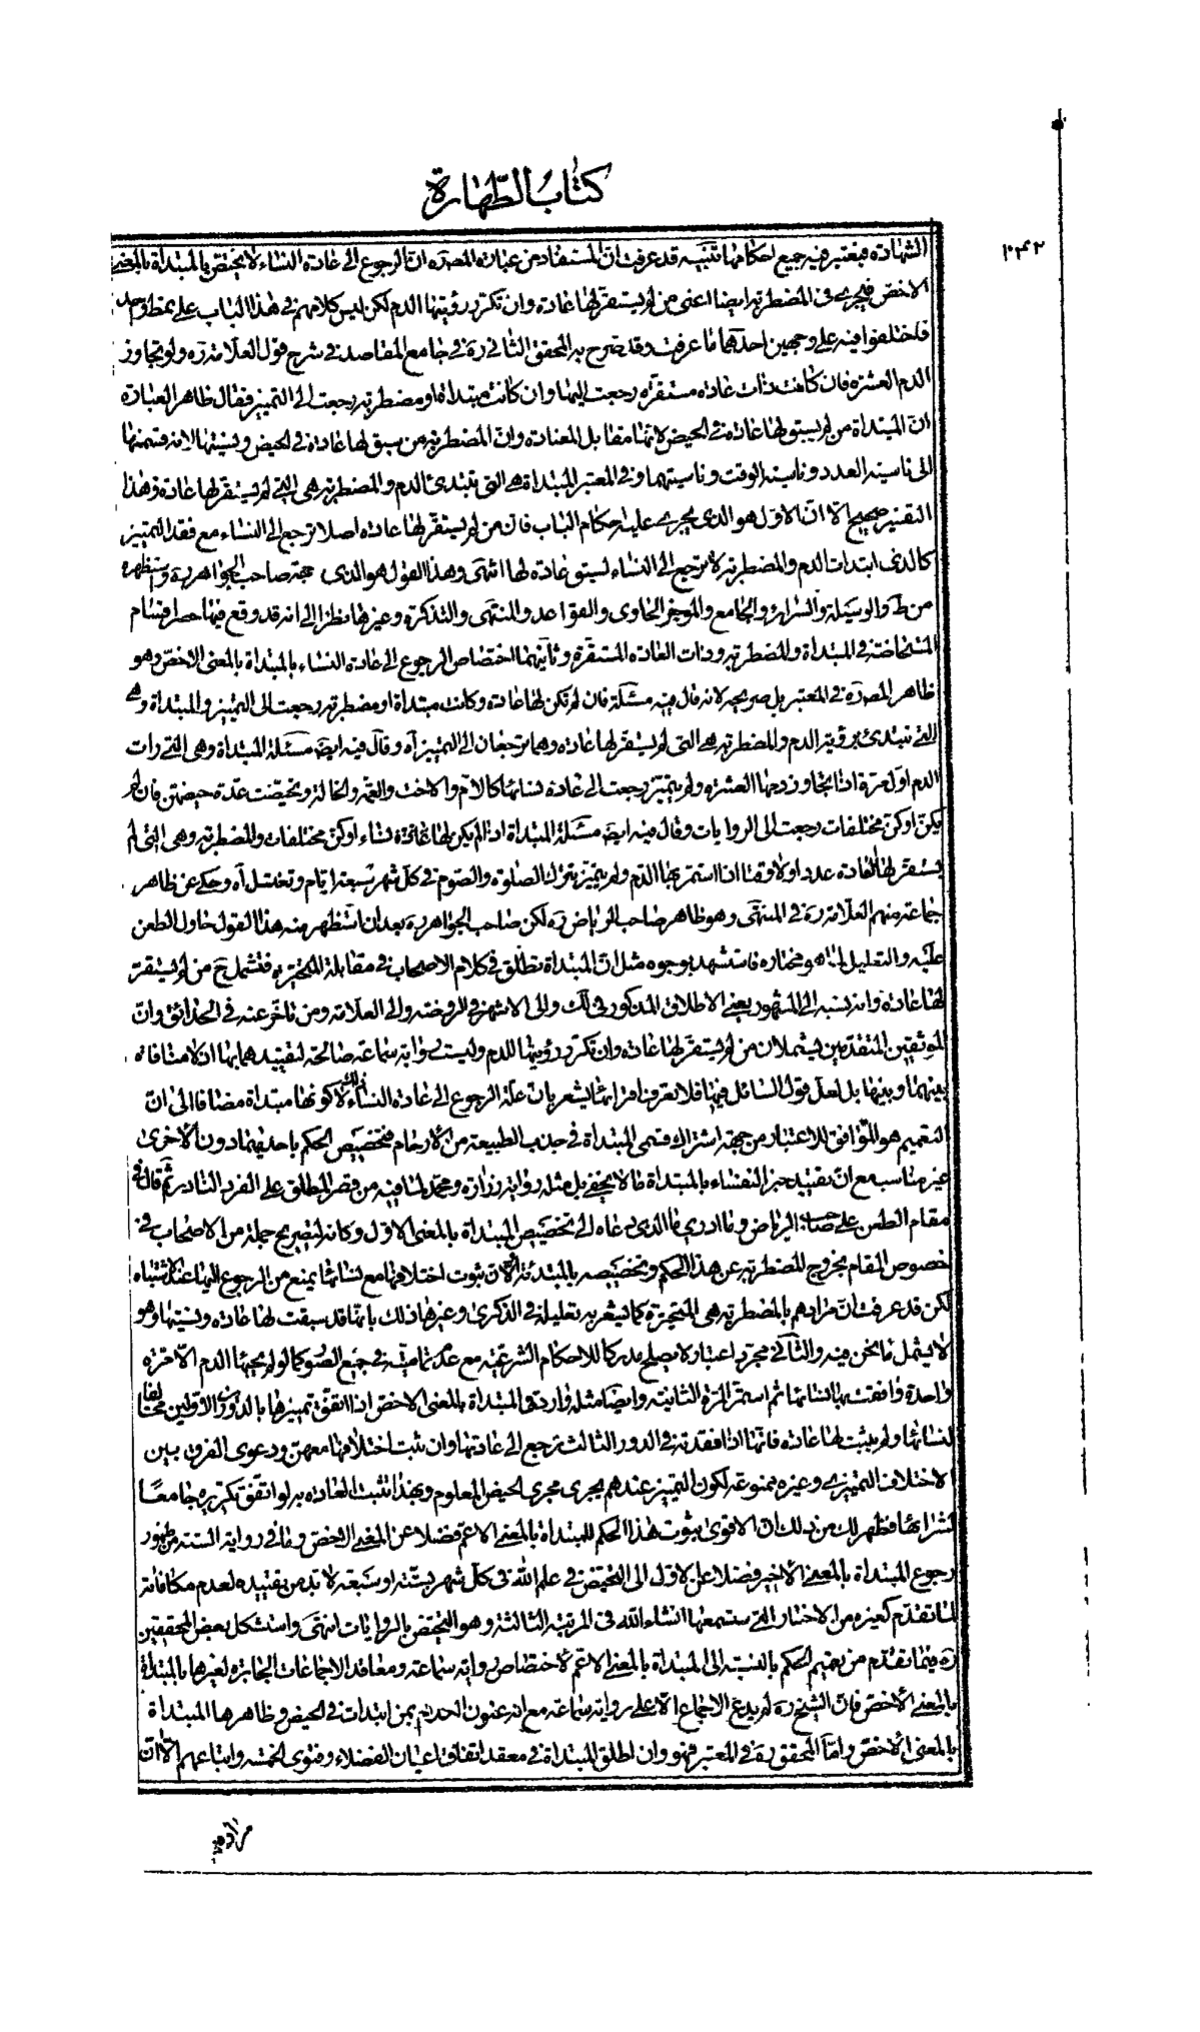 كتاب الطهارة
٢٤٢
الشهادة فيعتبر فيه جميع احكامها تنبيه قد عرفت ان المستفاد من عبارة المصنف ره ان الرجوع الى عادة النساء لا يختص بالمبتداة بالمعنى
الاخص فيجرى فى المضطربة ايضا اعنى من لم يستقر لها عادة وان تكرر رؤيتها الدم لكن ليس كلامهم فى هذا الباب على نمط واحد
فاختلفوا فيه على وجهين احدهما ما عرفت وقد صرح به المحقق الثانى ره فى جامع المقاصد فى شرح قول العلامة ره ولو تجاوز
الدم العشرة فان كانت ذات عادة مستقرة رجعت اليها وان كانت مبتداة او مضطربة رجعت الى التميز فقال ظاهر العبارة
ان المبتداة من لم يسبق لها عادة فى الحيض لانها مقابل المعتادة وان المضطربة من سبق لها عادة فى الحيض ونسيتها لانه قسمها
الى ناسية العدد وناسية الوقت وناسيتهما وفى المعتبر المبتداة هى التى تبتدئ الدم والمضطربة هى التى لم يستقر لها عادة وهذا
التفسير صحيح الا ان الاول هو الذى يجرى عليه احكام الباب فان من لم يستقر لها عادة اصلا ترجع الى النساء مع فقد التمييز
كالذى ابتدات الدم والمضطربة لا ترجع الى النساء لسبق عادة لها انتهى وهذا القول هو الذى صاحب الجواهر ره واستظهره
من ط والوسيلة والسرائر والجامع والموجز الحاوى والقواعد والمنتهى والتذكرة وغيرها نظرا الى انه قد وقع فيها حصر اقسام
المستحاضة فى المبتداة والمضطربة وذات العادة المستقرة وثانيهما اختصاص الرجوع الى عادة النساء بالمبتداة بالمعنى الاخص وهو
ظاهر المصنف ره فى المعتبر بل صريحه لانه قال فيه مسئلة فان لم تكن لها عادة وكانت مبتداة او مضطربة رجعت الى التميز والمبتداة وهى
التى تبتدئ برؤية الدم والمضطربة هى التى لم يستقر لها عادة وهما ترجعان الى التميز آه وقال فيه ايضا مسئلة المبتداة وهى التى رات
الدم اول مرة اذا تجاوز دمها العشرة ولم يتميز رجعت الى عادة نسائها كالام والاخت والعمة والخالة وتحيضت عدة حيضهن فان لم
يكن او كن مختلفات رجعت الى الروايات وقال فيه ايضا مسئلة المبتداة اذا لم يكن لها عادة نساء او كن مختلفات والمضطربة وهى التى لم
يستقر لها العادة عددا ولا وقتا اذا استمر بها الدم ولم يتميز بترك الصلوة والصوم فى كل شهر سبعة ايام وتغتسل آه وحكى عن ظاهر
جماعة منهم العلامة ره فى المنتهى وهو ظاهر صاحب الرياض ره لكن صاحب الجواهر ره بعد ان استظهر منه هذا القول حاول الطعن
عليه والتعليل لما هو مختاره فاستشهد بوجوه مثل ان المبتداة تطلق فى كلام الاصحاب فى مقابلة المتحيرة فتشمل ح من لم يستقر
لها عادة وانه نسبه الى المشهور يعنى الاطلاق المذكور فى لك والى الاشهر فى الروضة والى العلامة ومن تاخر عنه فى الحدائق وان
الموثقين المتقدمين يشملان من لم يستقر لها عادة وان تكرر رؤيتها للدم وليست رواية سماعة صالحة لتقييدهما بها اذ لا منافاة
بينهما وبينها بل لعل قول السائل فيها فلا تعرف اقرائها يشعر بان علة الرجوع الى عادة النساء ذلك لا كونها مبتداة مضافا الى ان
التعميم هو الموافق للاعتبار من جهة اشتراك قسمى المبتداة فى جذب الطبيعة من الارحام فتخصيص الحكم باحديهما دون الاخرى
غير مناسب مع ان تقييد خبر النفساء بالمبتداة مما لا يخفى بل مثله رواية زرارة ومحمد لما فيه من قصر المطلق على الفرد النادر ثم قال فى
مقام الطعن على صاحب الرياض وما ادرى ما الذى دعاه الى تخصيص المبتداة بالمعنى الاول وكانه لتصريح جملة من الاصحاب فى
خصوص المقام بخروج المضطربة عن هذا الحكم وتخصيصه بالمبتدئة او لان ثبوت اختلافها مع نسائها يمنع من الرجوع اليها عند الاشتباه
لكن قد عرفت ان مرادهم بالمضطربة هى المتحيرة كما يشعر به تعليله فى الذكرى وغيرها ذلك بانها قد سبقت لها عادة ونسيتها وهو
لا يشمل ما نحن فيه والثانى مجرد اعتبار لا يصلح مدركا للاحكام الشرعية مع عدم تماميته فى جميع الصور كما لو لم يجئها الدم الا مرة
واحدة وافقت بها نسائها ثم استمر المرة الثانية وايضا مثله وارد فى المبتداة بالمعنى الاخص اذا اتفق تميزها بالدورين الاولين مخالفا
لنسائها ولم يثبت لها عادة فانها اذا فقدته فى الدور الثالث ترجع الى عادتها وان ثبت اختلافها معهن ودعوى الفرق بين
الاختلاف التميزى وغيره ممنوعة لكون التميز عندهم يجرى مجرى الحيض المعلوم وبهذا تثبت العادة به لو اتفق تكرره جامعا
لشرائطها فظهر لك من ذلك ان الاقوى ثبوت هذا الحكم للمبتداة بالمعنى الاعم فضلا عن المعنى الاخص وما فى رواية السنة من ظهور
رجوع المبتداة بالمعنى الاخير فضلا عن الاول الى التحيض فى علم الله فى كل شهر بستة او سبعة لا بد من تقييده لعدم مكافاته
لما تقدم كغيره من الاخبار التى ستسمعها انشاء الله فى المرتبة الثالثة وهو التحيض بالروايات انتهى واستشكل بعض المحققين
ره فيما تقدم من تعميم الحكم بالنسبة الى المبتداة بالمعنى الاعم لاختصاص رواية سماعة ومعاقد الاجماعات الجابرة لغيرها بالمبتداة
بالمعنى الاخص فان الشيخ ره لم يدع الاجماع الا على رواية سماعة مع انه عنون الحديث بمن ابتدات فى الحيض وظاهرها المبتداة
بالمعنى الاخص واما المحقق ره فى المعتبر فهو وان اطلق المبتداة فى معقد اتفاق اعيان الفضلاء وفتوى الخمسة واتباعهم الا ان